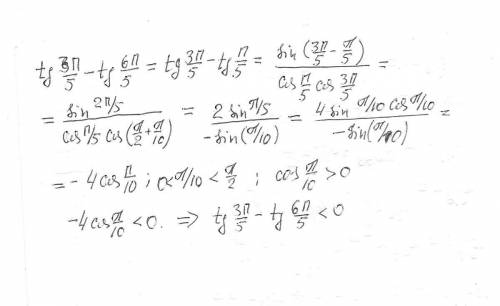 tg 3π/5 − tg 6π/5 = tg 3π/5 − tg π/5 = sin(3π/5 − π/5) / cos π/5 cos 3π/5 =
= sin 2π/5 / cos π/5 cos(π/2 + π/10) = 2 sin π/5 / −sin(π/10) = 4 sin π/10 cos π/10 / −sin(π/10) =
= −4cos π/10 ; 0<π/10 < π/2 ; cos π/10 > 0
−4cos π/10 < 0. ⇒ tg 3π/5 − tg 6π/5 < 0